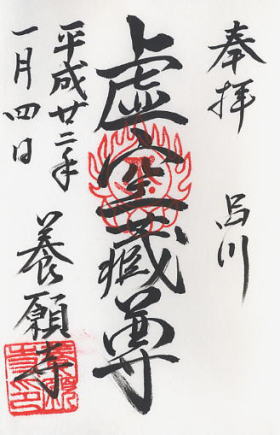 奉拝
品川
虚空蔵尊
平成廿二年
一月四日
養願寺